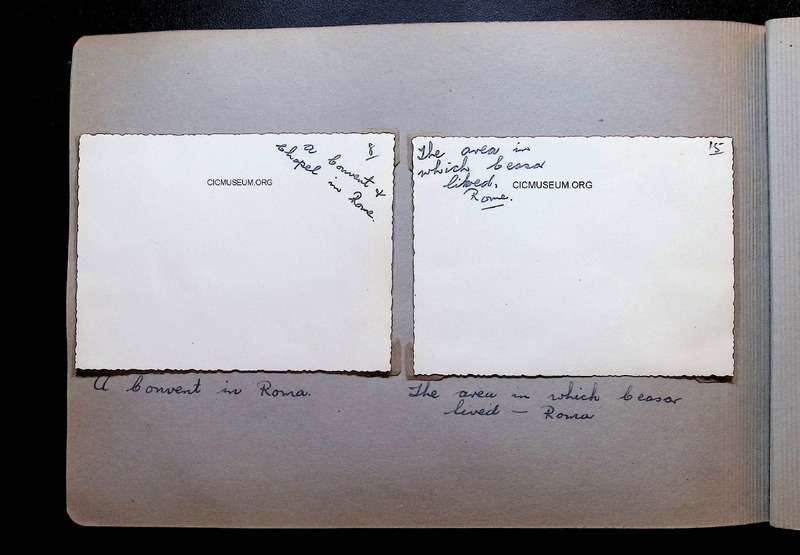 a
Chapel
Convent &
in Rome.
8
CICMUSEUM.ORG
A Convent in Roma.
The area in
which Ceasar
lived,
Rome.
15
CICMUSEUM.ORG
The area in which Ceasar
lived — Roma